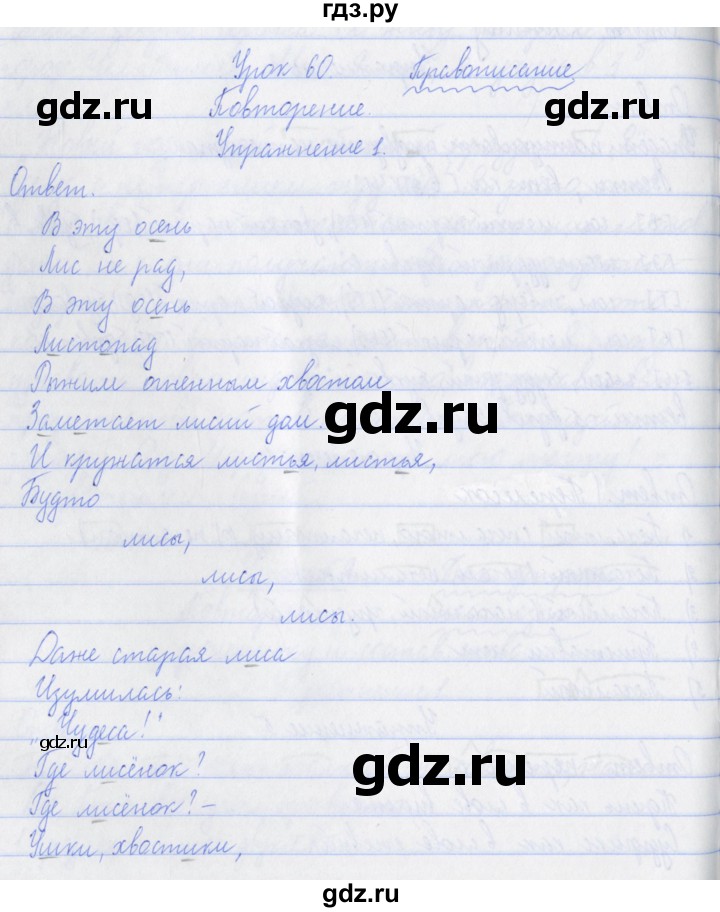 гдз.ру
Урок 60. Правописание
gdz.ru gdz.ru
Повторение.
Упражнение 1.
Ответ.
В эту осень
Лис не рад,
В эту осень
Листопад
Рыжим огненным хвостом
Заметает лисий дом.
gdz.ru
И кружатся листья, листья,
Будто
лисы,
лисы,
лисы.
Даже старая лиса
Изумилась:
„Чудеса!"
gdz.ru
Где лисёнок?
gdz.ru
Где лисёнок? –
Ушки, хвостики,
gdz.ru